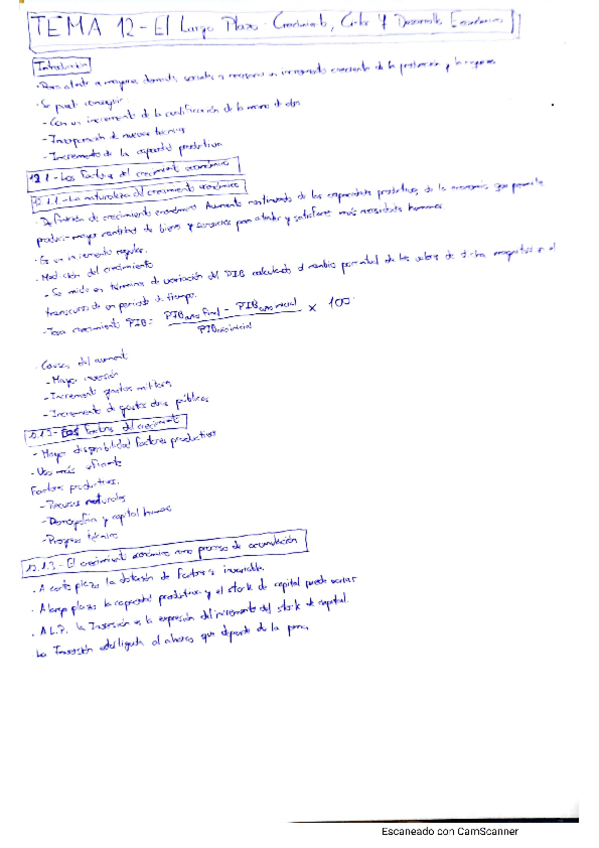 TEMA 12 - El Largo Plazo: Crecimiento, Ciclos y Desarrollo Económico
Introducción
- Para atender a mayores demandas sociales es necesario un incremento de la producción y la
- Se puede conseguir
- Con un incremento de la cualificación de la mano de obra
- Incorporación de nuevas técnicas
- Incremento de la capacidad productiva
12.1 - Los Factores del crecimiento económico
12.1.1 - La naturaleza del crecimiento económico
- Definición de crecimiento económico: Aumento continuado de las capacidades productivas de la economía que permite
producir mayor cantidad de bienes y servicios para atender y satisfacer más necesidades humanas.
- Es un incremento regular.
- Medición del crecimiento
- Se mide en términos de variación del PIB calculando el cambio porcentual de los valores de dicha magnitud en el
transcurso de un periodo de tiempo.
- Tasa crecimiento PIB = PIB año final - PIB año inicial / PIB año inicial × 100
- Causas del aumento
- Mayor inversión
- Incremento gastos militares
- Incremento de gastos obras públicas
Factores del crecimiento
- Mayor disponibilidad factores productivos
- Uso más eficiente
Factores productivos.
- Recursos naturales
- Demografía y capital humano
- Progreso técnico
12.1.3 - El crecimiento económico como proceso de acumulación
- A corto plazo la dotación de factores invariable.
- A largo plazo la capacidad productiva y el stock de capital puede variar
- A L.P. la Inversión es la expresión del incremento del stock de capital.
La Inversión está ligada al ahorro que depende de la
Escaneado con CamScanner